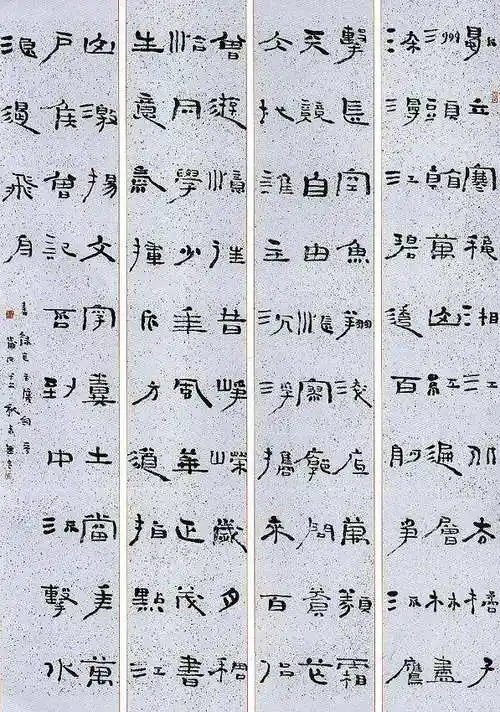 獨立寒穐湘江北去橘子
洲頭看萬山紅遍層林盡
染漫江碧透百舸爭流鷹
擊長空魚翔淺底萬類霜
天競自由悵寥廓問蒼茫
大地誰主沉浮攜來百侶
曾遊憶往昔崢嶸歲月稠
恰同學少年風華正茂書
生意氣揮斥方遒指點江
山激揚文字糞土當年萬
戶侯曾記否到中流擊水
浪遏飛舟